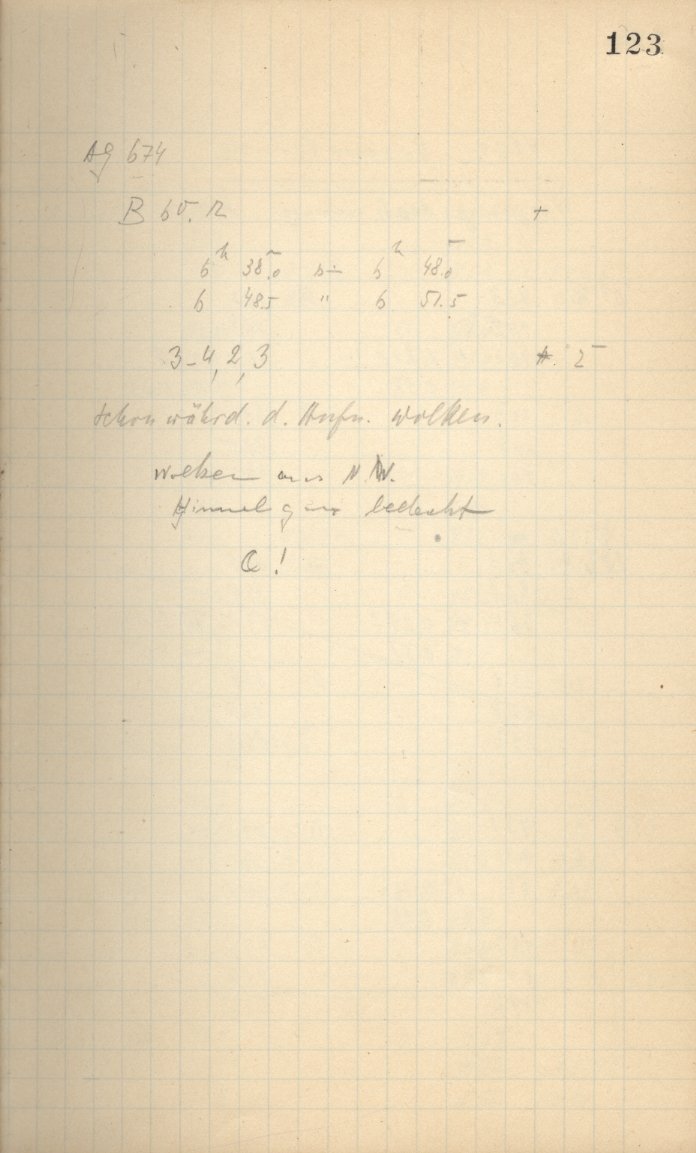 123
AG 674
B 60. R +
6h 38.0 bis 6h 48.0
6 48.5 " 6 51.5
3-4, 2, 3 5
Schon währd. d. Aufn. Wolken.
Wolken aus N.W.
Himmel ganz bedeckt
!